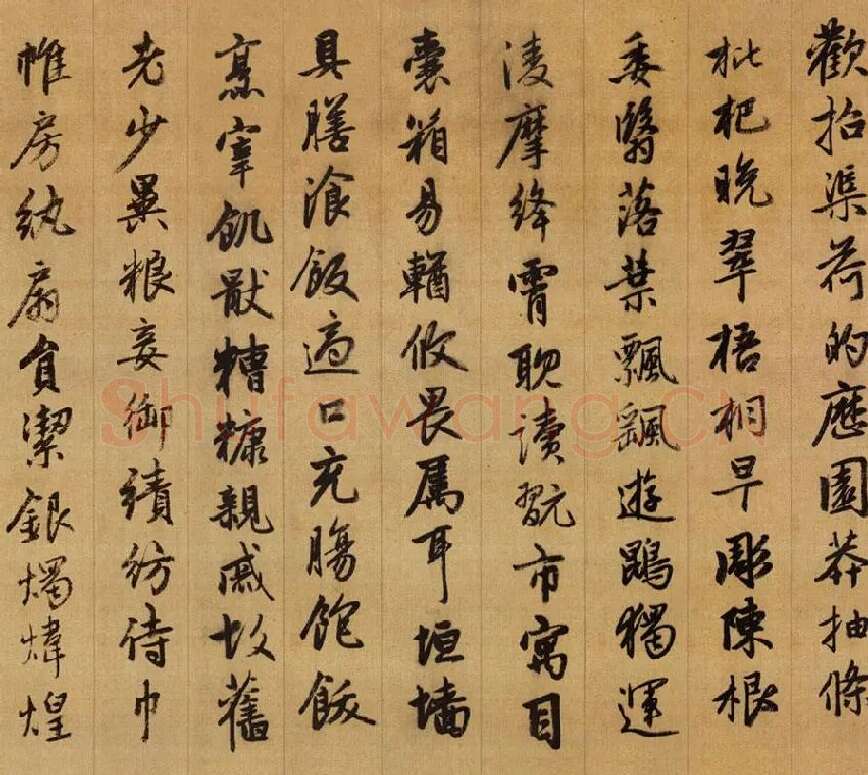 歡招渠荷的歷園莽抽條
枇杷晚翠梧桐早彫陳根
委翳落葉飄飖遊鵾獨運
凌摩絳霄耽讀翫市寓目
囊箱易輶攸畏属耳垣墙
具膳飡飯適口充腸飽飫
烹宰飢猒糟糠親戚故舊
老少異粮妾御績紡侍巾
帷房紈扇員潔銀燭煒煌
Shufawang.cn